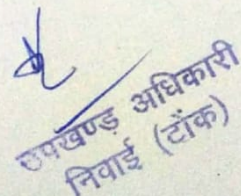 उपखण्ड़ अधिकारी
निवाई (टोंक)